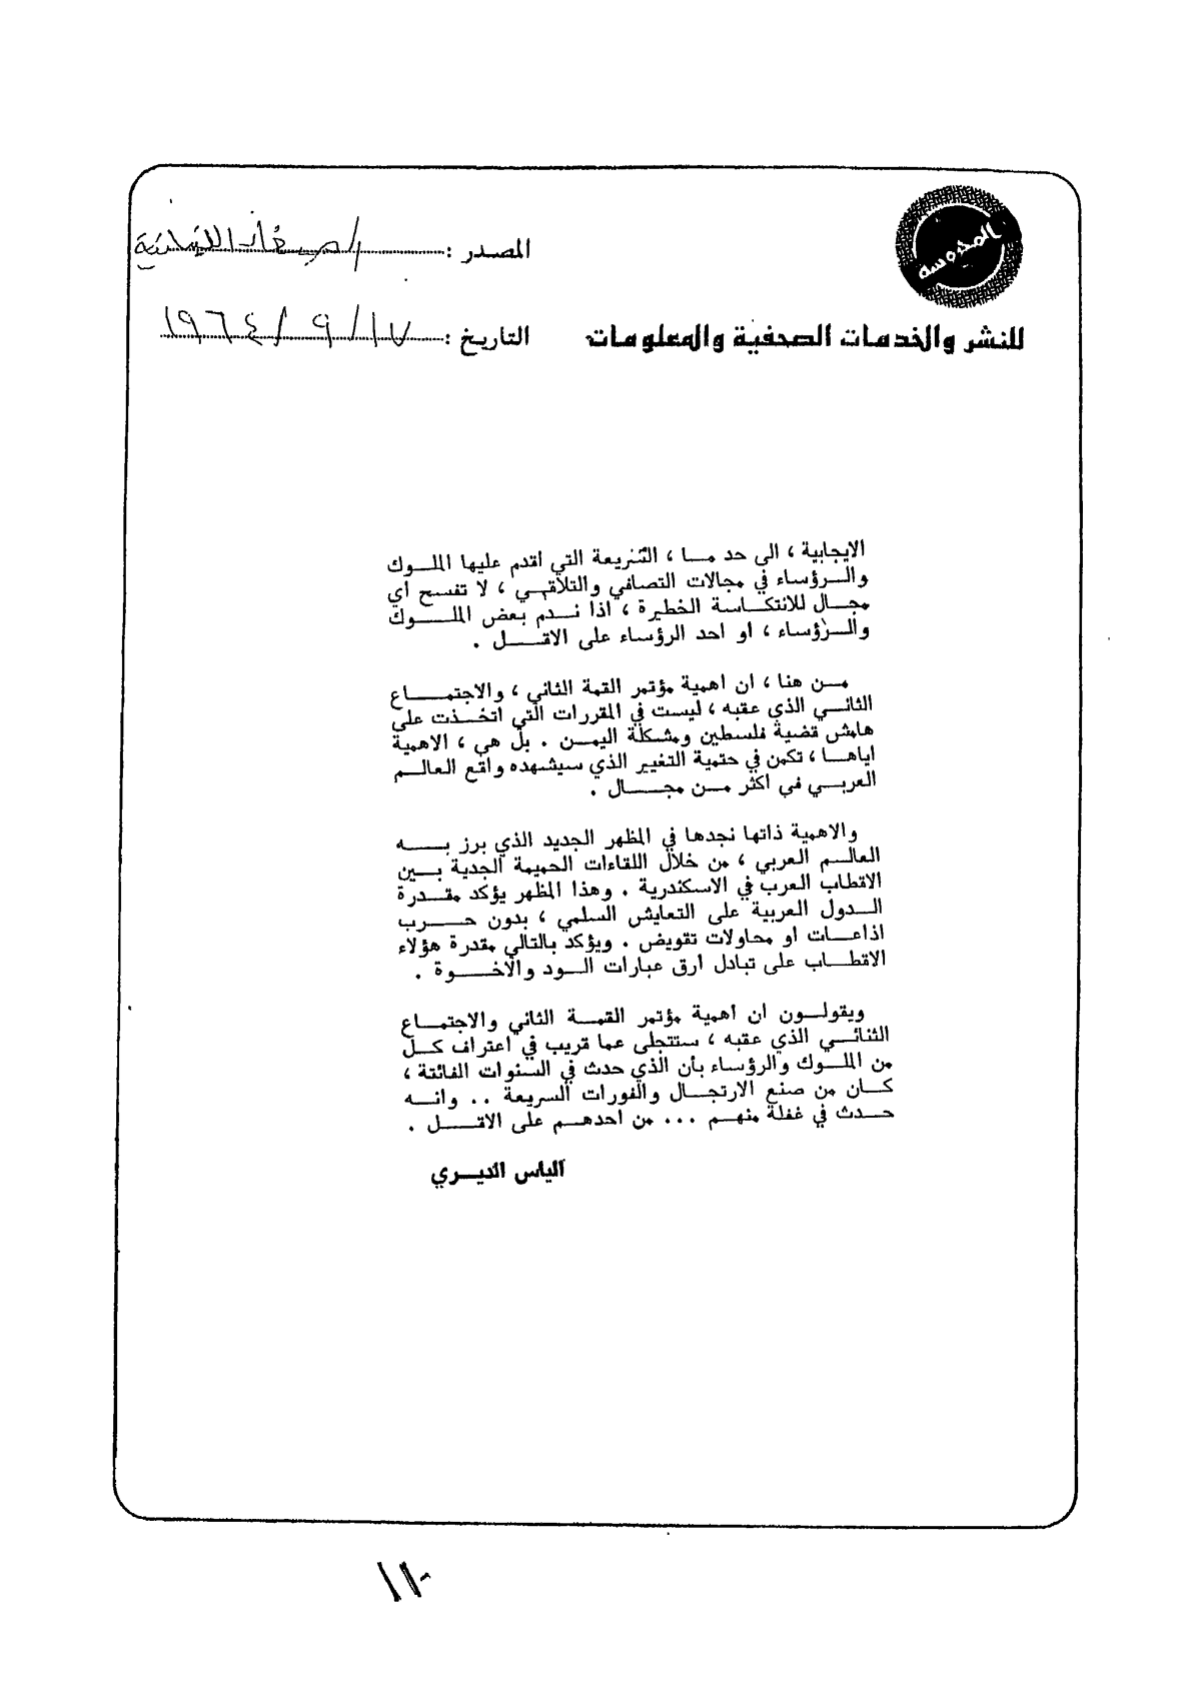 المحروسة
للنشر والخدمات الصحفية والمعلومات
المصدر :
التاريخ : ١٧ / ٩ / ١٩٦٤
الايجابية ، الى حد مـا ، التنريعة التي اقدم عليها الملـوك
والـرؤساء في مجالات التصافي والتلاقـي ، لا تفسح اي
مجـال للانتكـاسة الخطيرة ، اذا نـدم بعض الملـوك
والـرؤساء ، او احد الرؤساء على الاقـل .
مـن هنا ، ان اهمية مؤتمر القمة الثاني ، والاجتمـاع
الثانـي الذي عقبه ، ليست في المقررات التي اتخـذت على
هامش قضية فلسطين ومشكلة اليمـن . بل هي ، الاهمية
اياهـا ، تكمن في حتمية التغيير الذي سيشهده واقع العالـم
العربـي في اكثر مـن مجـال .
والاهمية ذاتها نجدها في المظهر الجديد الذي برز بـه
العالـم العربي ، من خلال اللقاءات الحميمة الجدية بـين
الاقطاب العرب في الاسكندرية . وهذا المظهر يؤكد مقـدرة
الـدول العربية على التعايش السلمي ، بدون حـرب
اذاعـات او محاولات تقويض . ويؤكد بالتالي مقدرة هؤلاء
الاقطـاب على تبادل ارق عبارات الـود والاخـوة .
ويقولـون ان اهمية مؤتمر القمـة الثاني والاجتمـاع
الثنائـي الذي عقبه ، ستتجلى عما قريب في اعتراف كـل
من الملـوك والرؤساء بأن الذي حدث في السنوات الفائتة ،
كـان من صنع الارتجـال والفورات السريعة .. وانـه
حـدث في غفلة منهـم ... من احدهـم على الاقـل .
الياس الديـري
١١٠